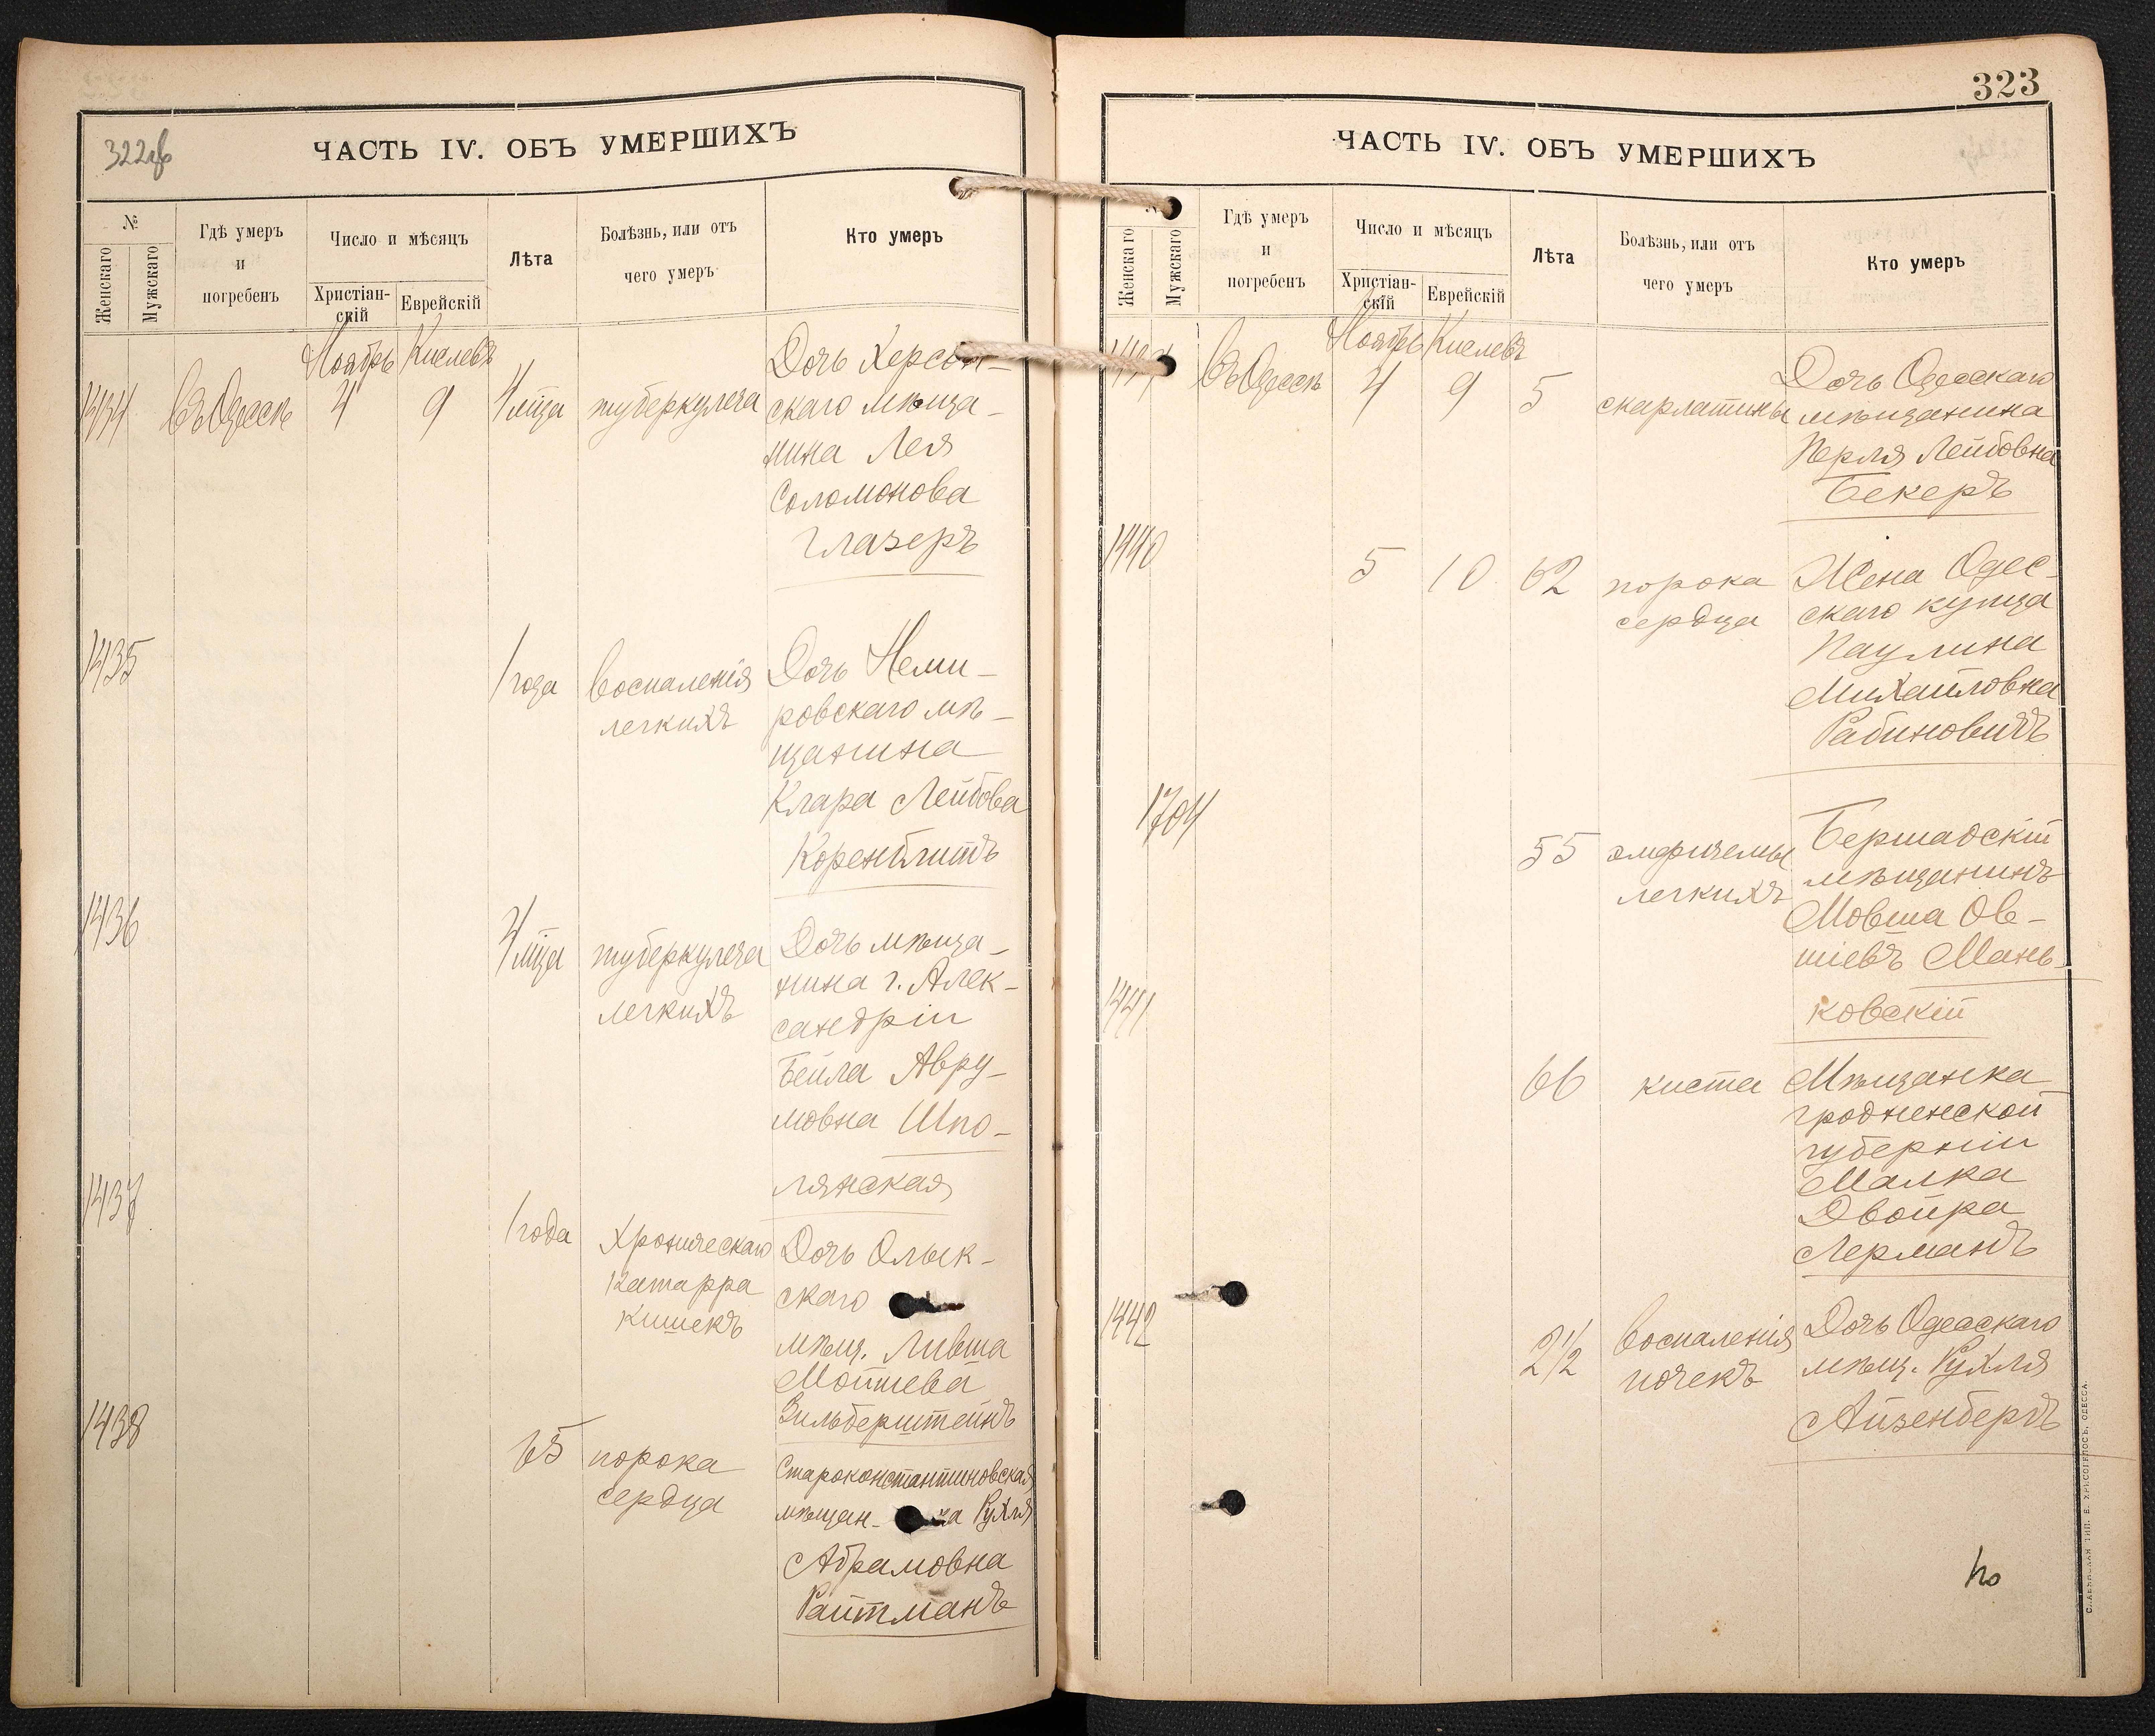 322об
ЧАСТЬ IV. ОБЪ УМЕРШИХЪ
№
Женскаго
Мужскаго
Гдѣ умеръ
и
погребенъ
Число и мѣсяцъ
Христіан-
скій
Еврейскій
Лѣта
Болѣзнь, или отъ
чего умеръ
Кто умеръ
Ноябрь Кислевъ
1434 въ Одессѣ 4 9 4 м̃ца туберкулеза
Дочь Херсон-
скаго мѣща-
нина Лея
Соломонова
Глазеръ
1435
1 года воспаленія
легкихъ
Дочь Неми-
ровскаго мѣ-
щанина
Клара Лейбова
Коренблитъ
1436
4 м̃ца туберкулеза
легкихъ
Дочь мѣща-
нина г. Алек-
сандріи
Бейла Авру-
мовна Шпо-
лянская
1437
1 года Хроническаго
катарра
кишекъ
Дочь Олык-
скаго
мѣщ. Ливша
Мошнева
Зильберштейнъ
1438
65 порока
сердца
Староконстантиновская
мѣщан- ка Рухля
Абрамовна
Райтманъ
323
ЧАСТЬ IV. ОБЪ УМЕРШИХЪ
Женскаго
Мужскаго
Гдѣ умеръ
и
погребенъ
Число и мѣсяцъ
Христіан-
скій
Еврейскій
Лѣта
Болѣзнь, или отъ
чего умеръ
Кто умеръ
Ноябрь Кислевъ
въ Одессѣ 4 9 5 скарлатины
Дочь Одесскаго
мѣщанина
Перля Лейбовна
Бекеръ
1440
5 10 62 порока
сердца
Жена Одес-
скаго купца
Паулина
Михайловна
Рабиновичъ
1704
55 эмфиземы
легкихъ
Бершадскій
мѣщанинъ
Мовша Ов-
шіевъ Мань-
ковскій
1441
66 киста
Мѣщанка
гродненской
губерніи
Малка
Двойра
Лерманъ
1442
2 1/2 воспаленія
почекъ
Дочь Одесскаго
мѣщ. Рухля
Айзенбергъ
СЛАВЯНСКАЯ ТИП. Е. ХРИСОГЕЛОСЪ, ОДЕССА.